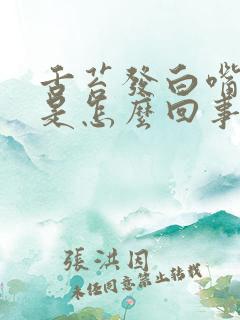 舌苔發白嘴
是怎麼回事
張洪因
未经同意禁止转载